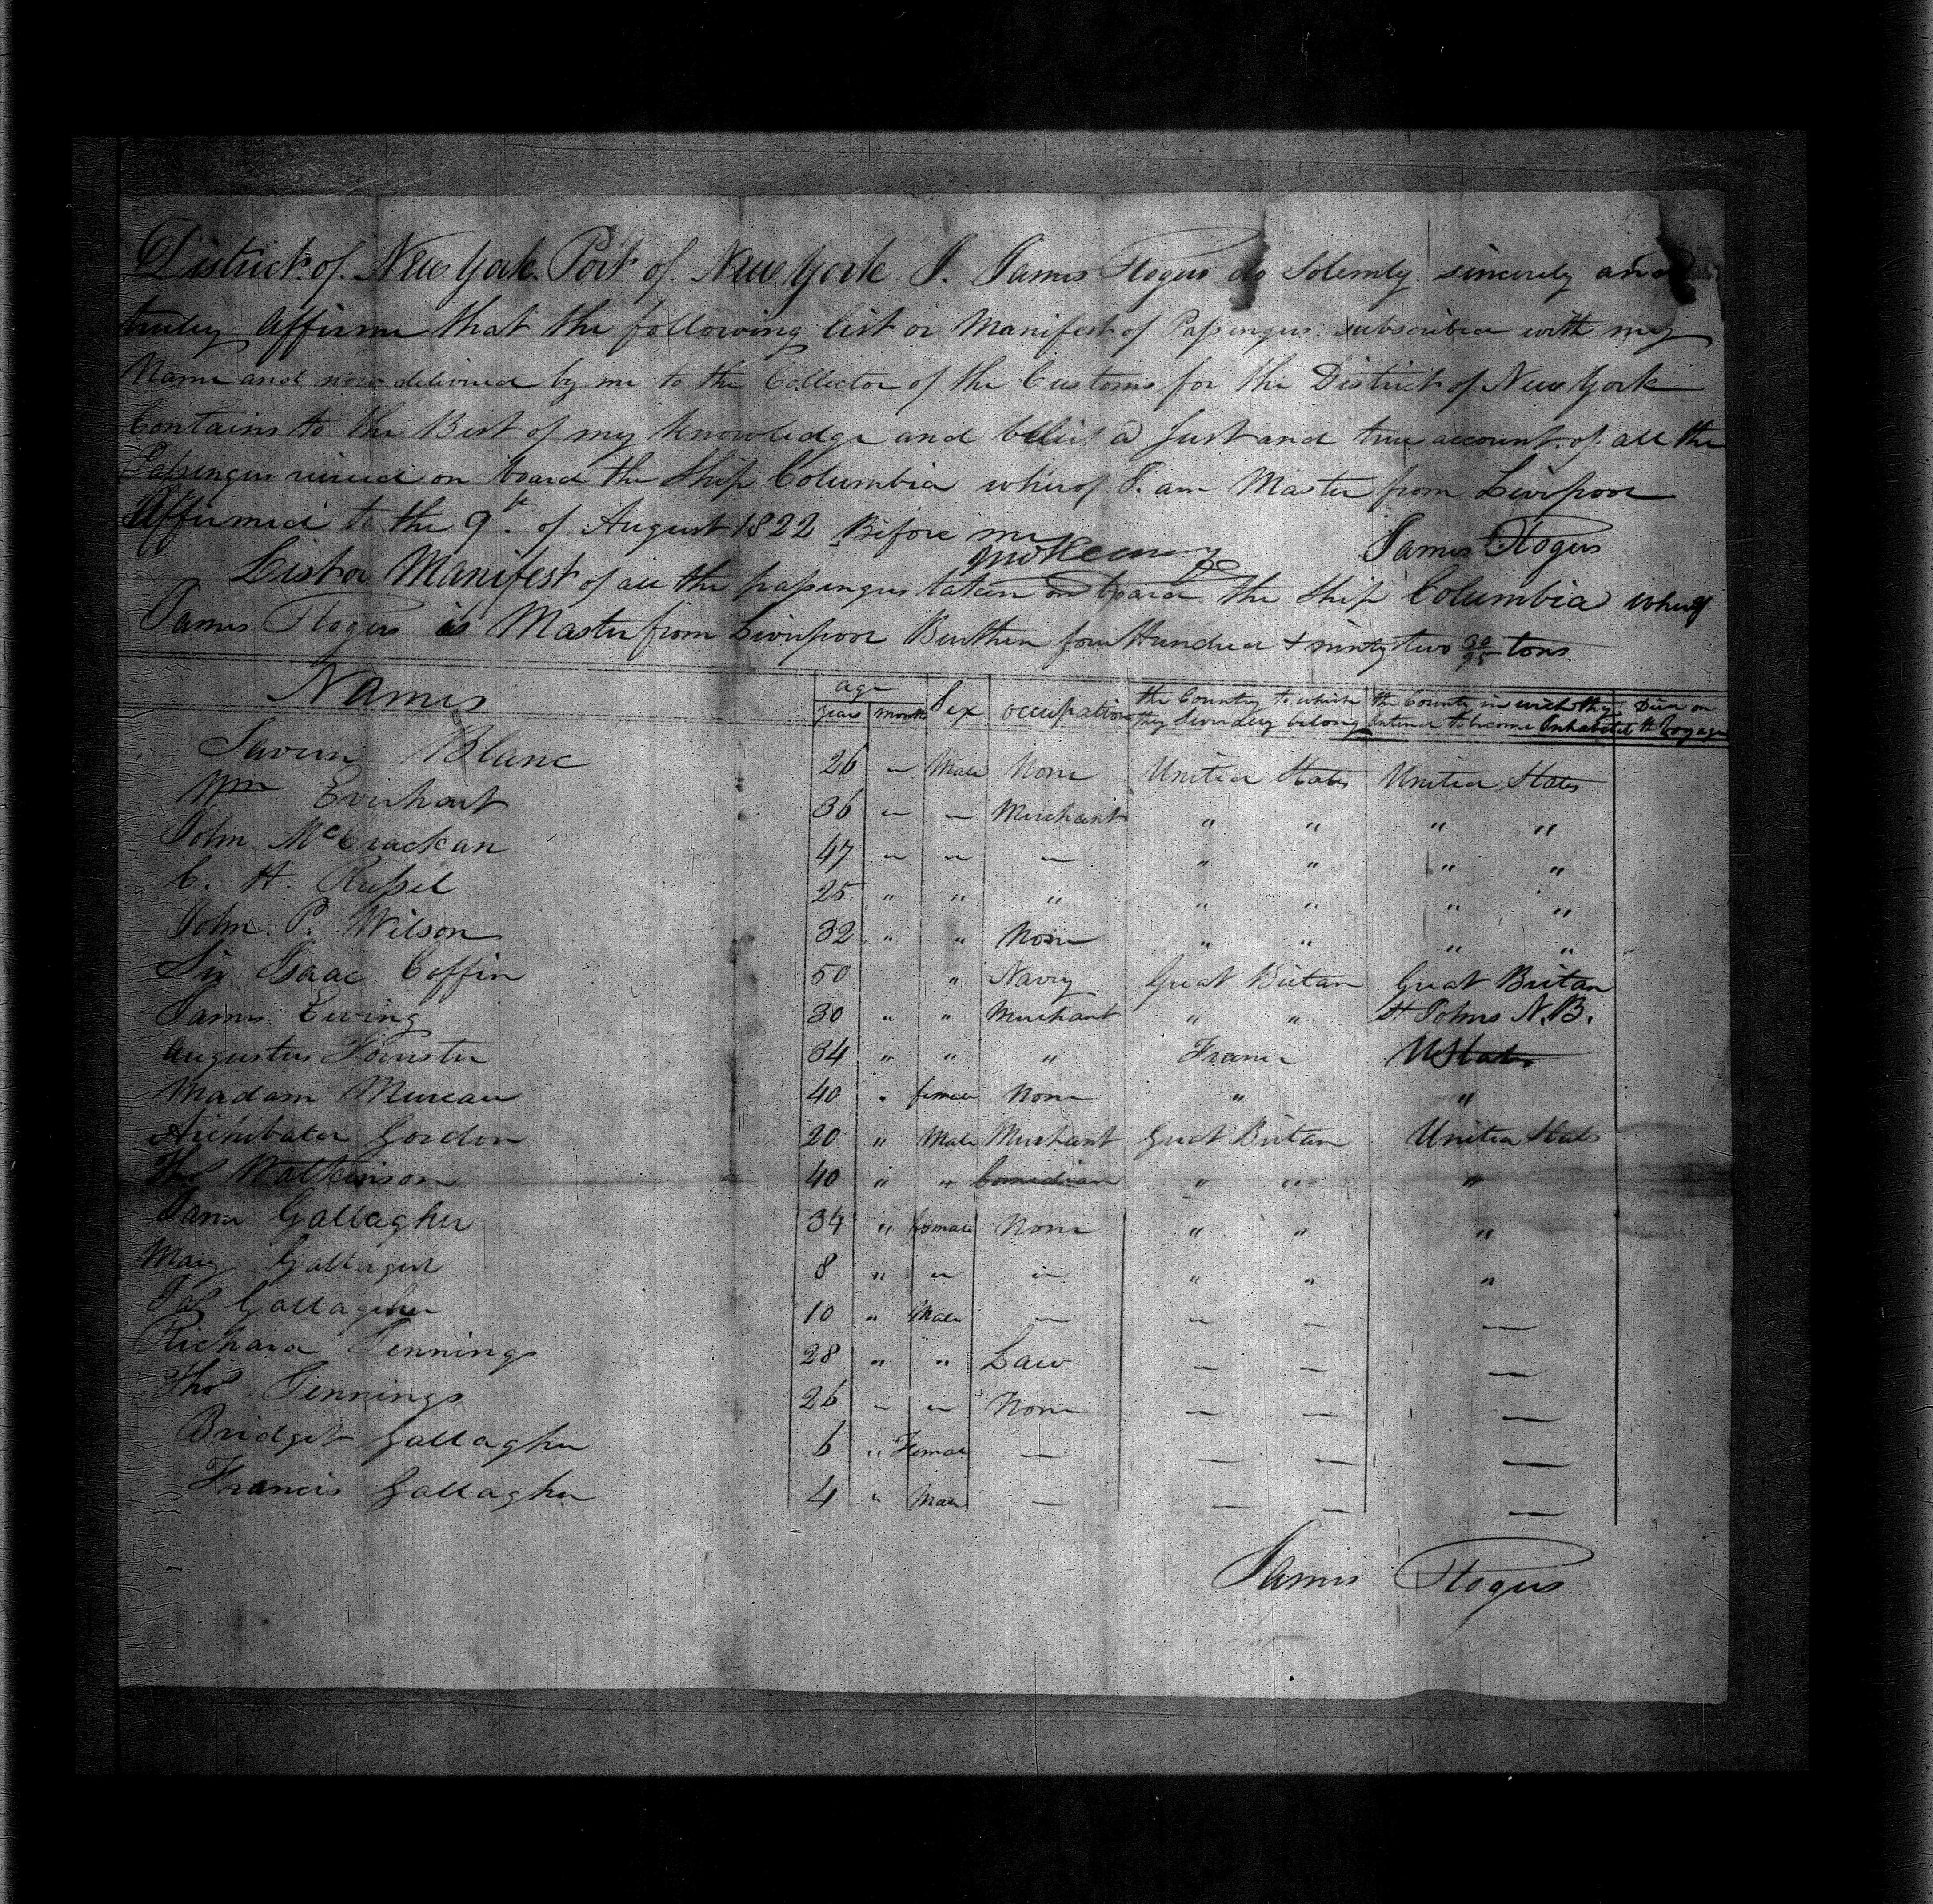 District of New York Port of New York I. James Rogers do Solemly sincerely and
truley Affirm that the following list or Manifest of Passengers subscribed with my
Name and now delivered by me to the Collector of the Customs for the District of New York
Contains to the Best of my Knowledge and belief a Just and true account of all the
Passengers received on board the Ship Columbia wherof I am Master from Liverpool
Affirmed to the 9th of August 1822 Before me James Rogers
List or Manifest of all the passengers taken on board the Ship Columbia wherof
James Rogers is Master from Liverpool Burthen four Hundred & ninty two 30/95 tons
Names age years months Sex occupation the Country to which they Severaley belong the Country in wich they intend to become Inhabited Died on the Voyage
Blanc 26 — Male None United States United States
Wm Everhart 36 — — Merchant " " " "
John McCrackan 47 " " — " " " "
C. H. Russel 25 " " " " " " "
John P. Wilson 32 " " None " " " "
Sir Isaac Coffin 50 " Navy Great Britan Great Britan
James Ewing 30 " " Merchant " " St Johns N.B.
Augustus 34 " " " France U States
Madam 40 " female None " "
Archibald Gordon 20 " Male Merchant Great Britan United States
Thos Watkinson 40 " " Comedian " " "
Jane Gallagher 34 " female None " " "
Mary Gallager 8 " " " " " "
Jas Gallagher 10 " Male — — — —
Richard Jennings 28 " " Law — — —
Thos Jennings 26 — " None — — —
Bridget Gallagher 6 " Female — — — —
Francis Gallagher 4 " Male — — — —
James Rogers